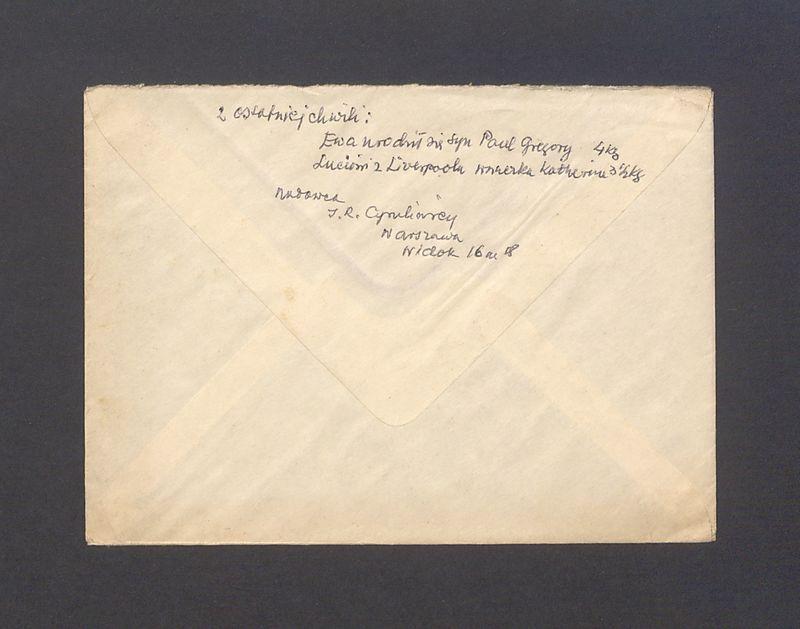 z ostatniej chwili:
Ewa urodził się syn Paul Gregory 4 kg
Lucioni z Liverpoola wnuczka Katherine 3½ kg
nadawca
J. R.
Warszawa
Widok 16 m 8